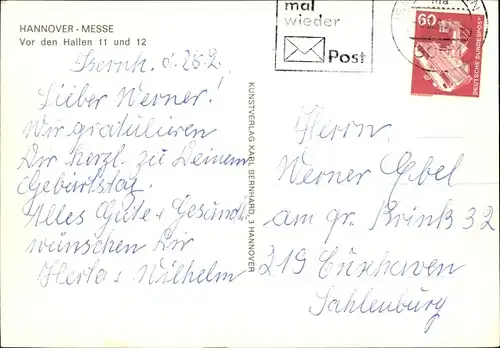 HANNOVER - MESSE
Vor den Hallen 11 und 12
Bernh. d. 28.2.
Lieber Werner!
Wir gratulieren
Dir herzl. zu Deinem
Geburtstag.
Alles Gute + Gesundh.
wünschen Dir
Herta + Wilhelm
KUNSTVERLAG KARL BERNHARD, 3 HANNOVER
mal
wieder
Post
60
DEUTSCHE BUNDESPOST
Herrn
Werner Ebel
am gr. Brink 32
219 Cuxhaven
Sahlenburg